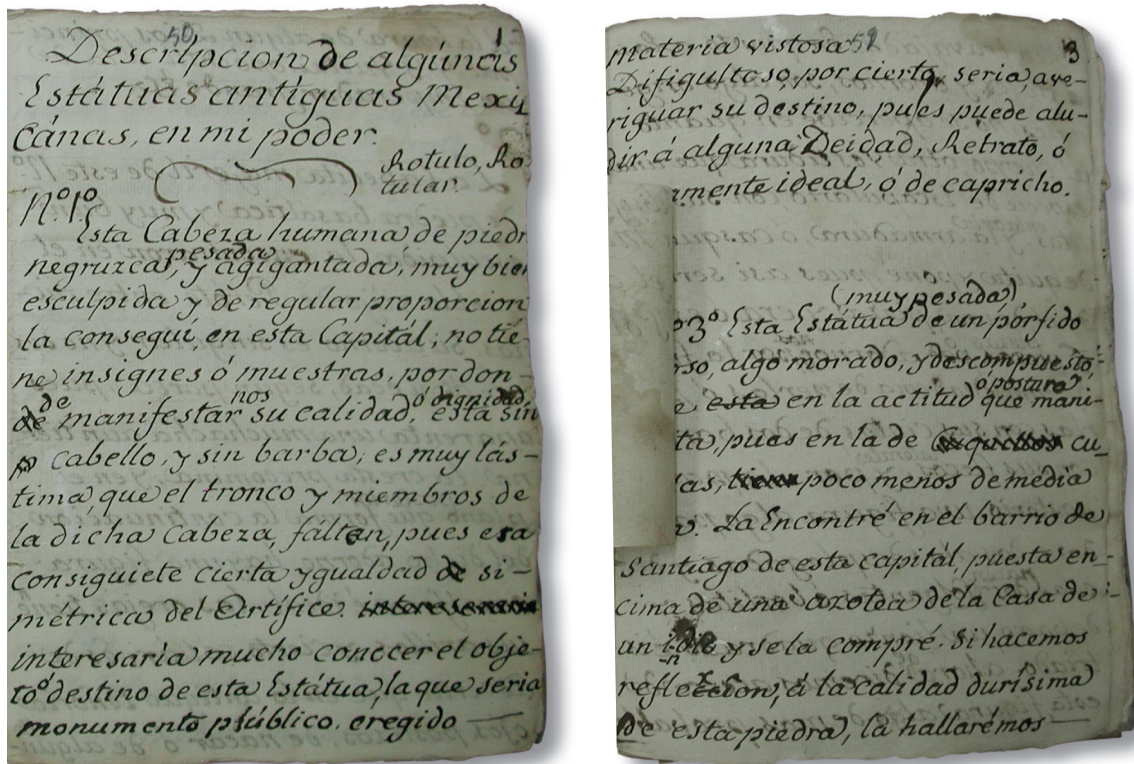 50 1
Descripcion de algúnas
Estátuas antíguas Mexi
cánas, en mi poder.
Rotulo, Ro
tular.
Nº.1º
Esta Cabeza humana de piedr
pesada
negruzca, y agigantada, muy bien
esculpida y de regular proporcion
la consegui, en esta Capitál; no tié-
ne insignes ó muestras, por don-
de nos ó dignidad,
de manifestar su calidad, está sin
cabello, y sin barba; es muy lás-
tima, que el tronco y miembros de
la dicha Cabeza, fáltan, pues era
consiguiete cierta ygualdad de si-
métrica del Artífice.
interesaria mucho conocer el obje-
to ó destino de esta Estátua, la que seria
monumento público, eregido
materia vistosa 3
Difigultoso, por cierto, seria, ave-
riguar su destino, pues puede alu-
dir á alguna Deidad, Retrato, ó
amente ideal, ó de capricho.
(muy pesada),
º3º Esta Estátua de un pórfido
so, algo morado, y descompuesto
ó postura
e esta en la actitud que mani-
ta, pues en la de cu-
las, poco menos de media
a. La Encontré en el barrio de
Santiago de esta capitál, puesta en-
cima de una azotea de la Casa de
un y se la compré. Si hacemos
refleccion, á la calidad durísima
de esta piedra, la hallarémos